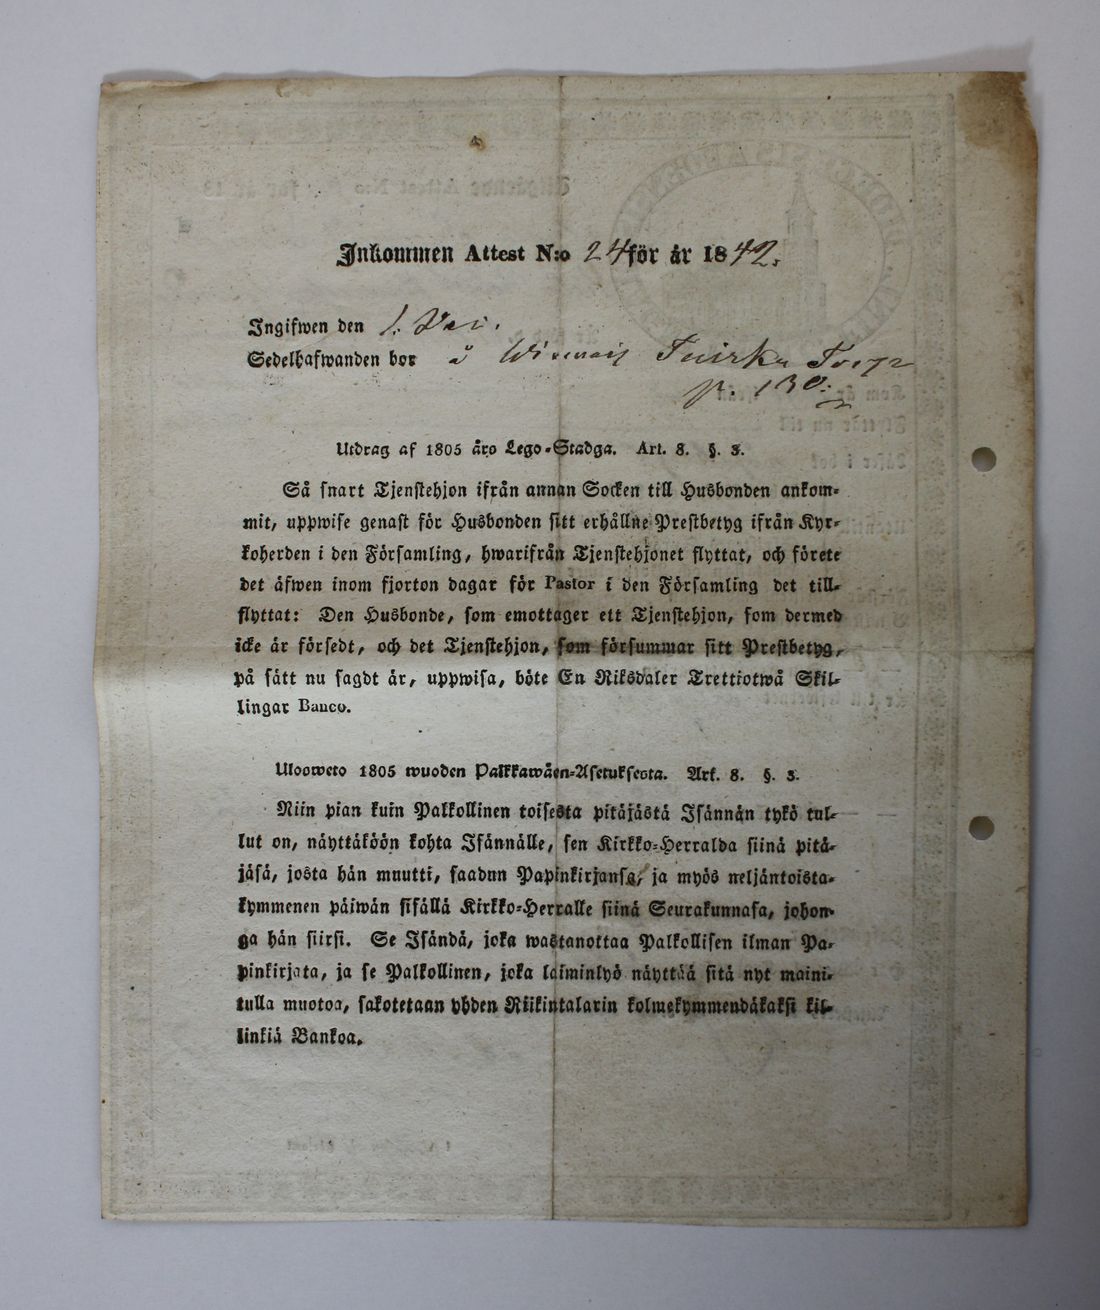 Inkommen Attest N:o 24 för år 1842.
Ingifwen den 1.
Sedelhafwanden bor å
p. 130.
Utdrag af 1805 års Lego-Stadga. Art. 8. §. 3.
Så snart Tjenstehjon ifrån annan Socken till Husbonden ankom-
mit, uppwise genast för Husbonden sitt erhållne Prestbetyg ifrån Kyr-
koherden i den Församling, hwarifrån Tjenstehjonet flyttat, och förete
det äfwen inom fjorton dagar för Pastor i den Församling det till-
flyttat: Den Husbonde, som emottager ett Tjenstehjon, som dermed
icke är försedt, och det Tjenstehjon, som försummar sitt Prestbetyg,
på sätt nu sagdt är, uppwisa, böte En Riksdaler Trettiotwå Skil-
lingar Banco.
Uloosweto 1805 wuoden Palkkawäen-Asetuksesta. Art. 8. §. 3.
Niin pian kuin Palkollinen toisesta pitäjästä Isännän tykö tul-
lut on, näyttäköön kohta Isännälle, sen Kirkko-Herralda siinä pitä-
jäsä, josta hän muutti, saadun Papinkirjansa, ja myös neljäntoista-
kymmenen päiwän sisällä Kirkko-Herralle siinä Seurakunnasa, johon-
ga hän siirsi. Se Isändä, joka wastanottaa Palkollisen ilman Pa-
pinkirjata, ja se Palkollinen, joka laiminlyö näyttää sitä nyt maini-
tulla muotoa, sakotetaan yhden Riikintalarin kolmekymmendäkaksi kil-
linkiä Bankoa.